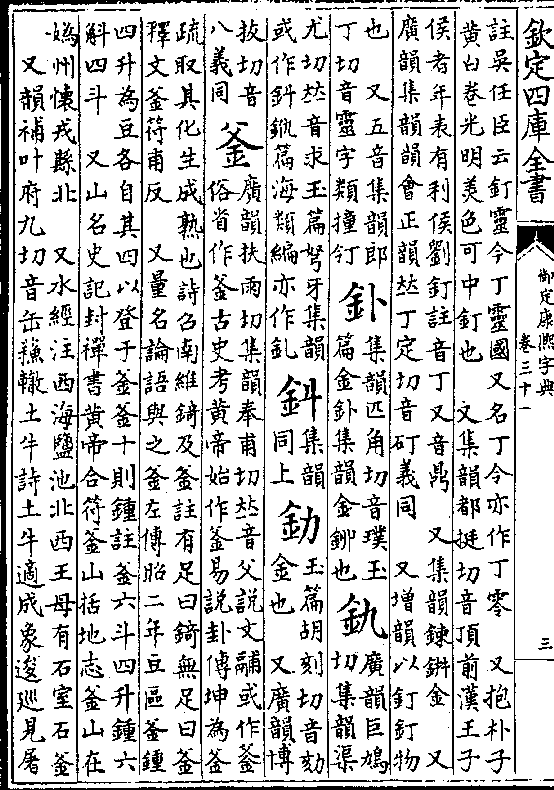 欽定四庫全書
御定康熙字典
卷三十一
三
註吳任臣云釘靈今丁靈國又名丁令亦作丁零　又抱朴子
黄白卷光明美色可中釘也　又集韻都挺切音頂前漢王子
侯者年表有利侯劉釘註音丁又音鼎　又集韻鍊鉼金　又
廣韻集韻韻會正韻𠀤丁定切音矴義同　又增韻以釘釘物
也　又五音集韻郎
丁切音靈字類撞釘
釙
集韻匹角切音璞玉
篇金釙集韻金鉚也
釚
廣韻巨鳩
切集韻渠
尤切𠀤音求玉篇弩牙集韻
或作䤛釚篇海類編亦作釓
䤛
集韻
同上
釛
玉篇胡刻切音劾
金也　又廣韻博
拔切音
八義同
釜
廣韻扶雨切集韻奉甫切𠀤音父說文鬴或作釜
俗省作釜古史考黄帝始作釜易説卦傳坤為釜
疏取其化生成熟也詩召南維錡及釜註有足曰錡無足曰釜
釋文釜符甫反　又量名論語與之釜左傳昭二年豆區釜鍾
四升為豆各自其四以登于釜釜十則鍾註釜六斗四升鍾六
斛四斗　又山名史記封禪書黄帝合符釜山括地志釜山在
嬀州懷戎縣北　又水經注西海鹽池北西王母有石室石釜
又韻補叶府九切音缶蘇轍土牛詩土牛適成象逡巡見屠